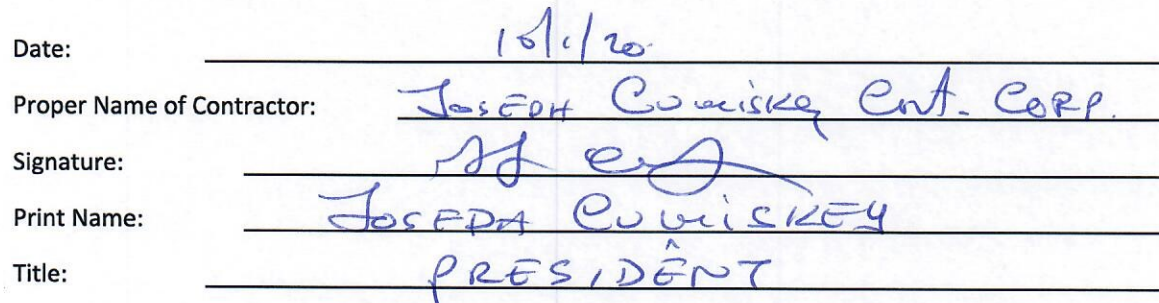 Date: 10/1/20
Proper Name of Contractor: Joseph Cumiskey Cnt. Corp.
Signature:
Print Name: Joseph Cumiskey
Title: PRESIDENT